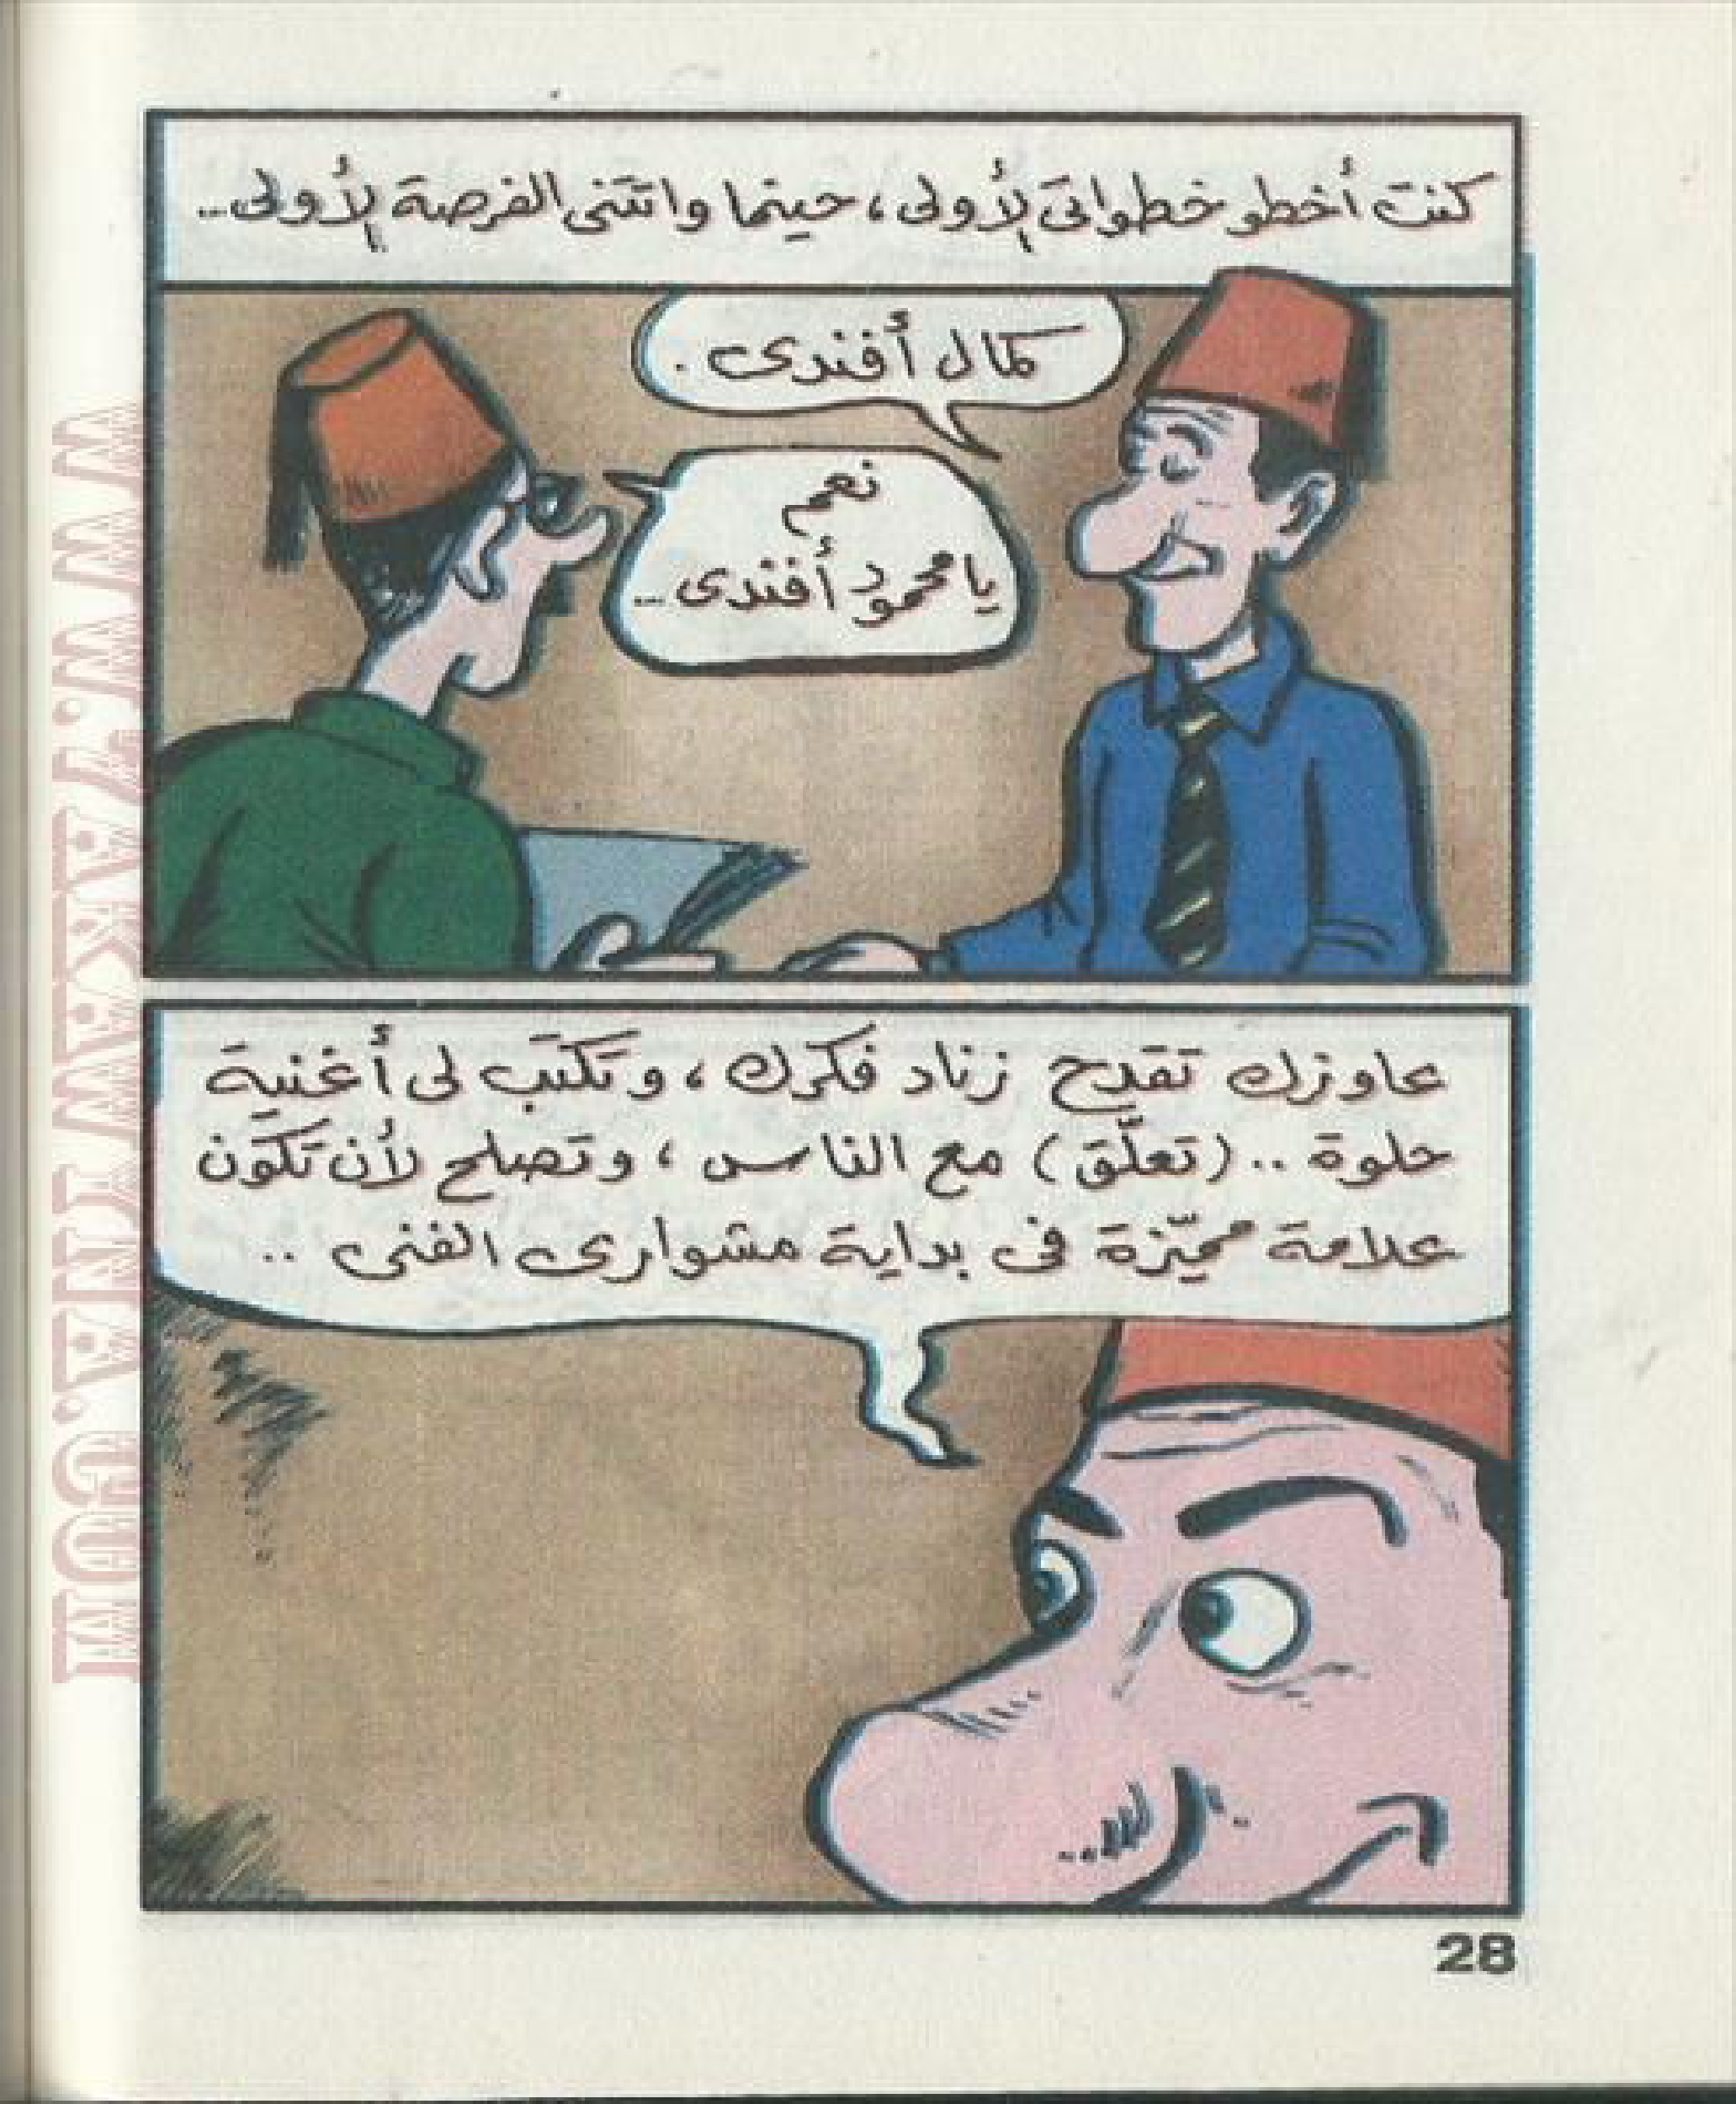 كنت أخطو خطواتى الأولى، حينما واتتنى الفرصة الأولى...
كمال أفندى .
نعم
يا محمود أفندى...
عاوزك تقدح زناد فكرك، وتكتب لى أغنية
حلوة .. (تعلَّق) مع الناس، وتصلح لأن تكون
علامة مميّزة فى بداية مشوارى الفنى ..
28